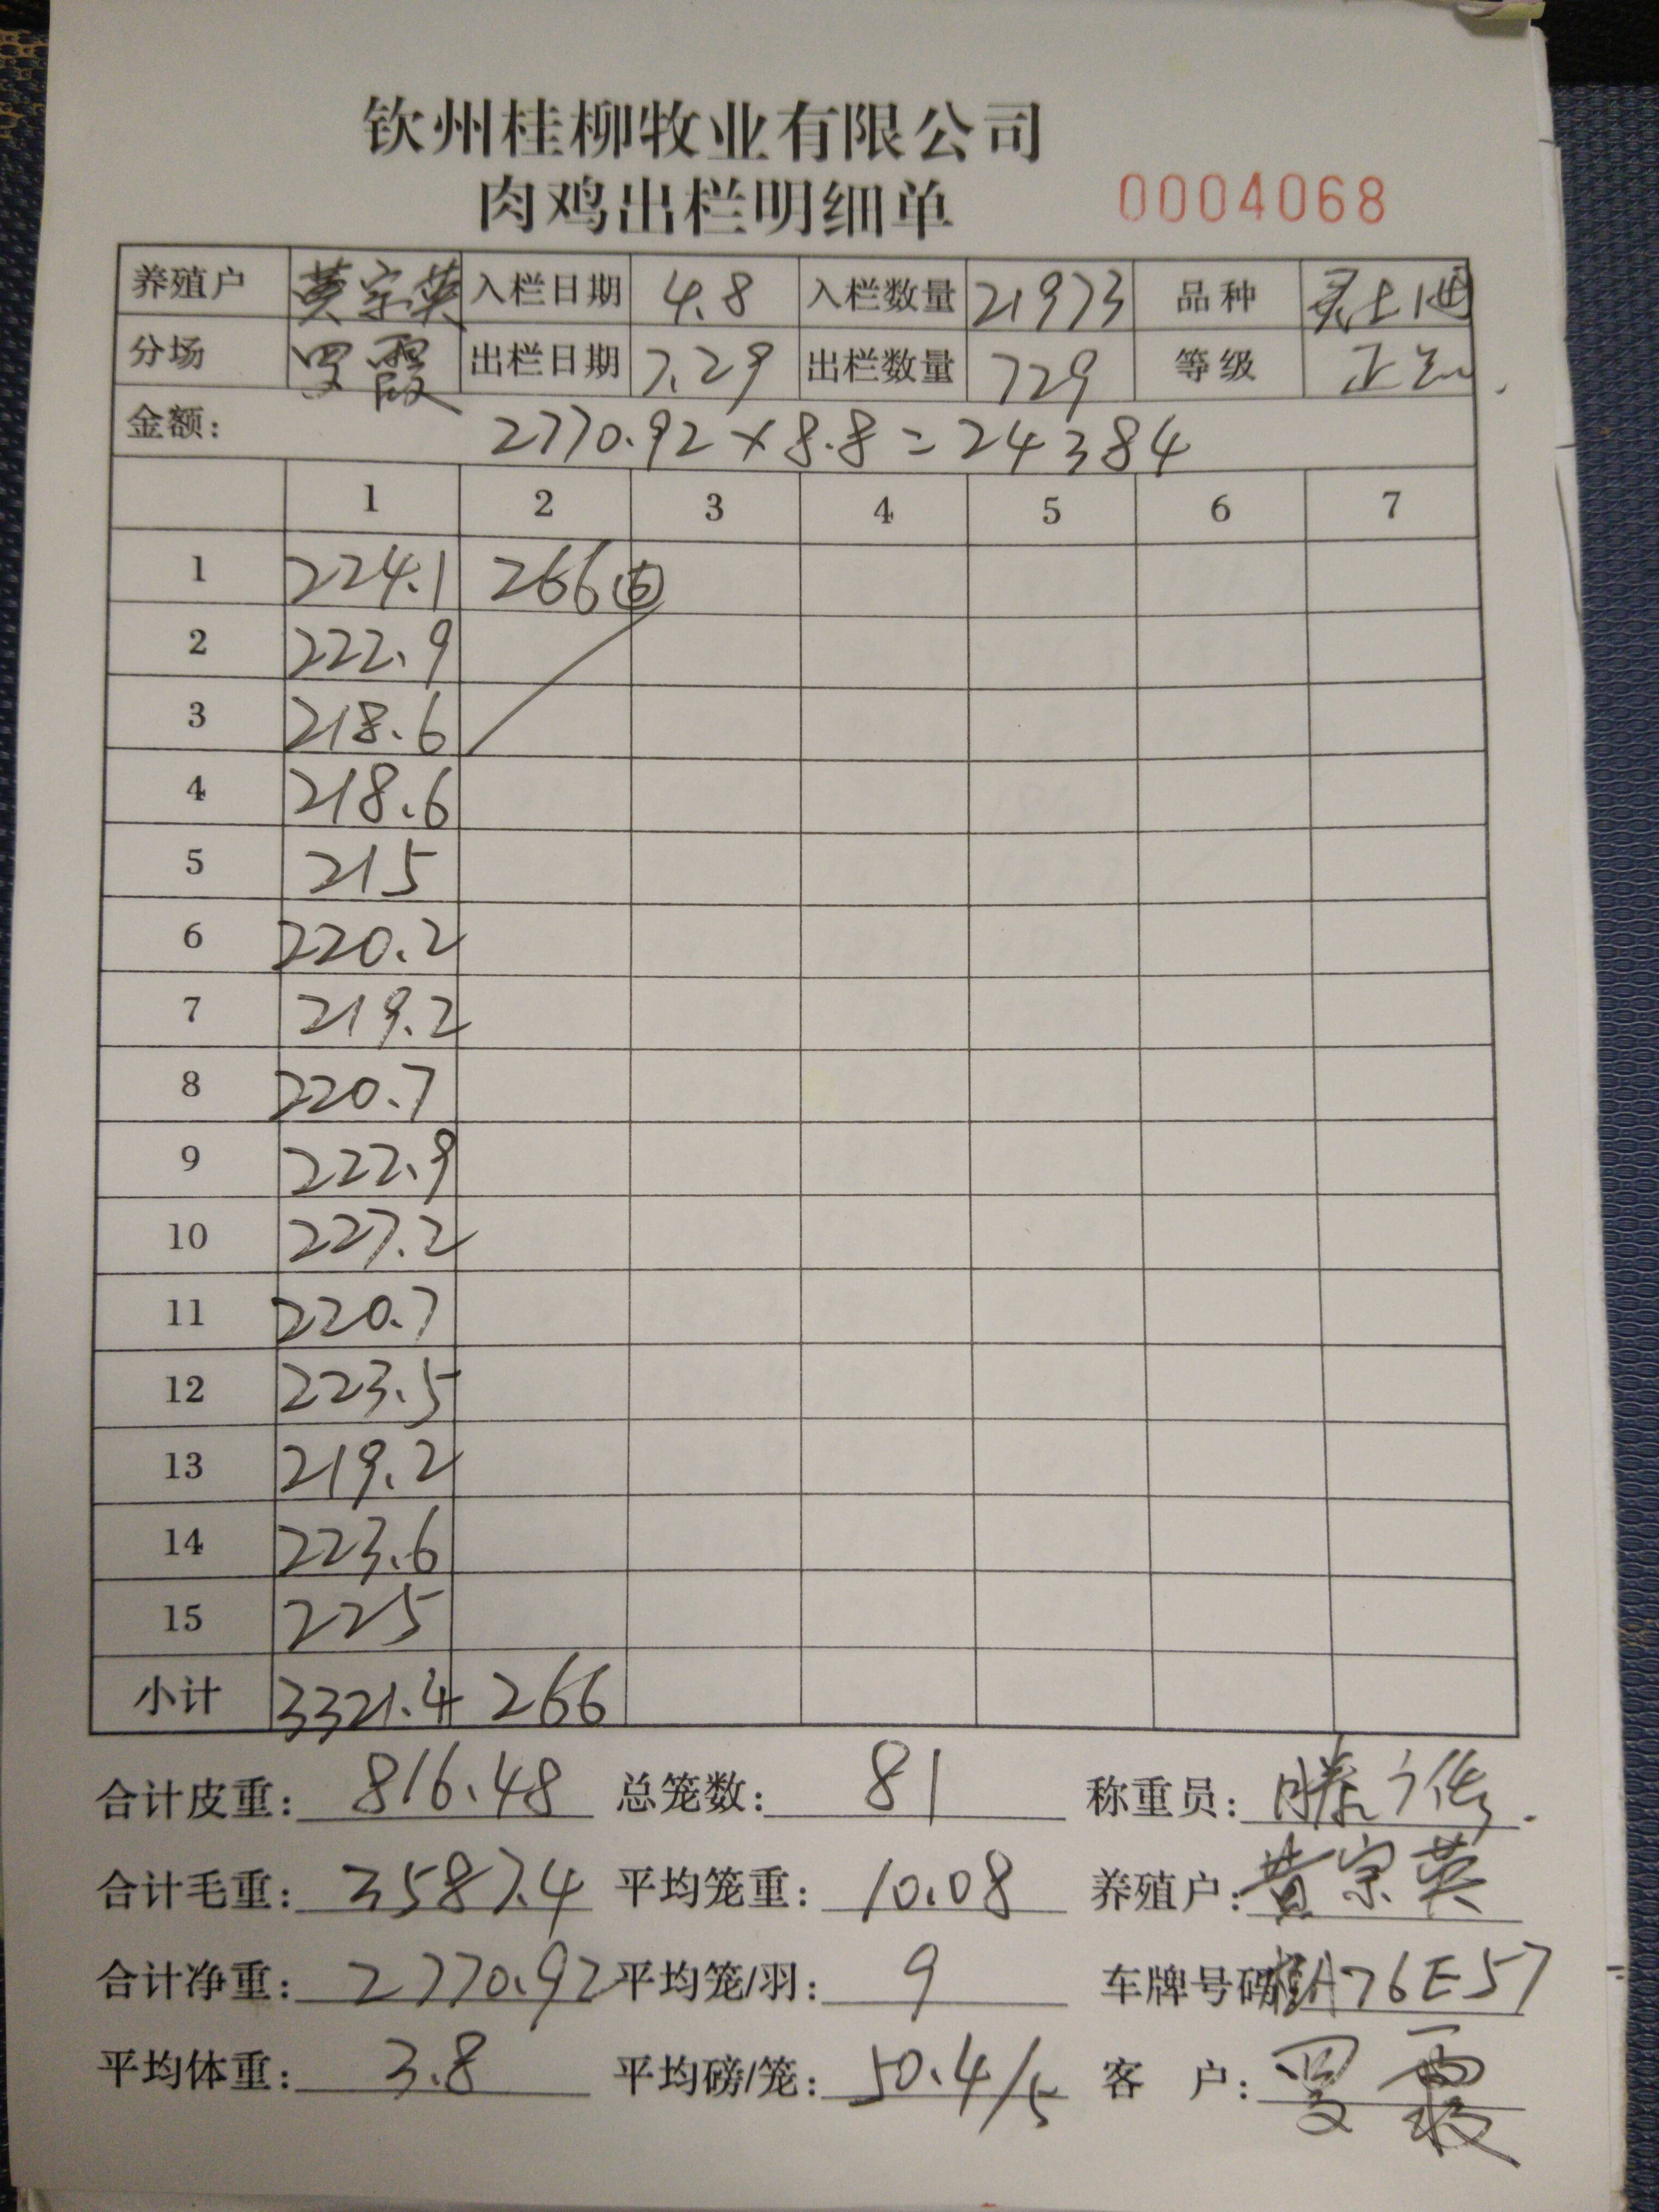 钦州桂柳牧业有限公司
肉鸡出栏明细单 0004068
养殖户 黄宗英 入栏日期 4.8 入栏数量 21973 品种
分场 罗霞 出栏日期 7.29 出栏数量 729 等级
金额: 2770.92×8.8=24384
1 2 3 4 5 6 7
1 224.1 266⑥
2 222.9
3 218.6
4 218.6
5 215
6 220.2
7 219.2
8 220.7
9 222.9
10 227.2
11 220.7
12 223.5
13 219.2
14 223.6
15 225
小计 3321.4 266
合计皮重: 816.48 总笼数: 81 称重员:
合计毛重: 3587.4 平均笼重: 10.08 养殖户: 黄宗英
合计净重: 2770.92 平均笼/羽: 9 车牌号码 桂A76E57
平均体重: 3.8 平均磅/笼: 50.4/5 客 户: 罗霞